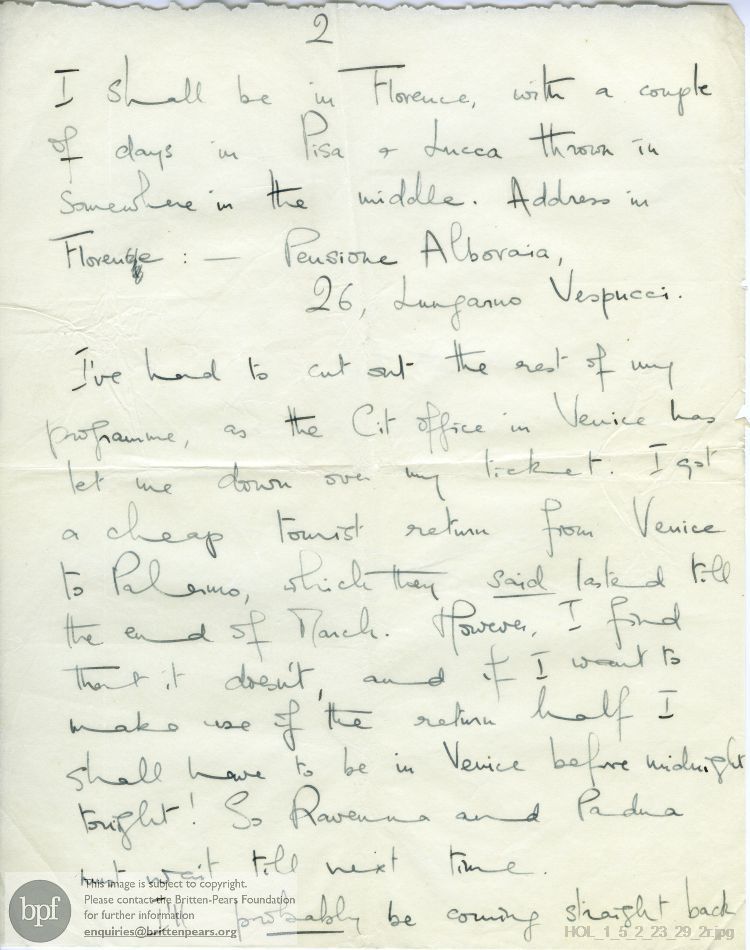 2
I shall be in Florence, with a couple
of days in Pisa + Lucca thrown in
somewhere in the middle. Address in
Florence : — Pensione Alboraia,
26, Lungarno Vespucci.
I've had to cut out the rest of my
programme, as the Cit office in Venice has
let me down over my ticket. I got
a cheap tourist return from Venice
to Palermo, which they said lasted till
the end of March. However, I find
that it doesn't, and if I want to
make use of the return half I
shall have to be in Venice before midnight
tonight! So Ravenna and Padua
must wait till next time.
I'll probably be coming straight back
bpf
This image is subject to copyright.
Please contact the Britten-Pears Foundation
for further information
enquiries@brittenpears.org
HOL_1_5_2_23_29_2r.jpg